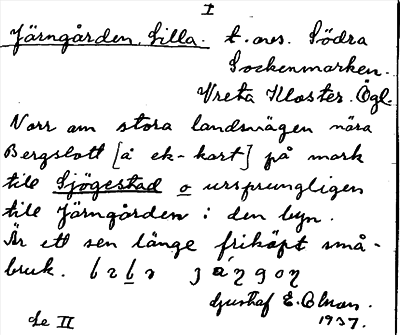 I
Järngården, Lilla. t. övers. Södra
Sockenmarken.
Vreta Kloster. Ögl.
Norr om stora landsvägen nära
Bergslott [å ek-kart] på mark
till Sjögestad o ursprungligen
till Järngården i den byn.
Är ett sen länge friköpt små-
bruk.
Gustaf E. Olson.
Se II 1937.